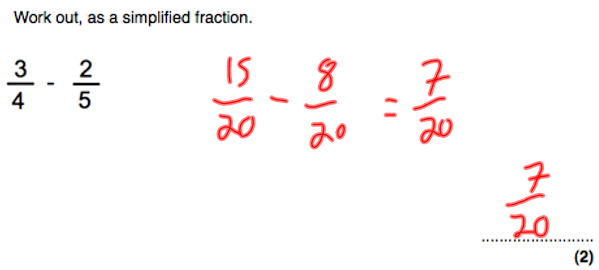 Work out, as a simplified fraction.
3/4 - 2/5
15/20 - 8/20 = 7/20
7/20
(2)